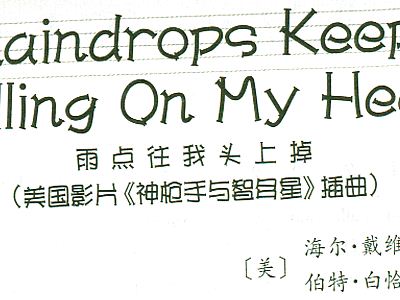 aindrops Keep
lling On My Hea
雨点往我头上掉
（美国影片《神枪手与智多星》插曲）
海尔·戴维
〔美〕
伯特·白恰